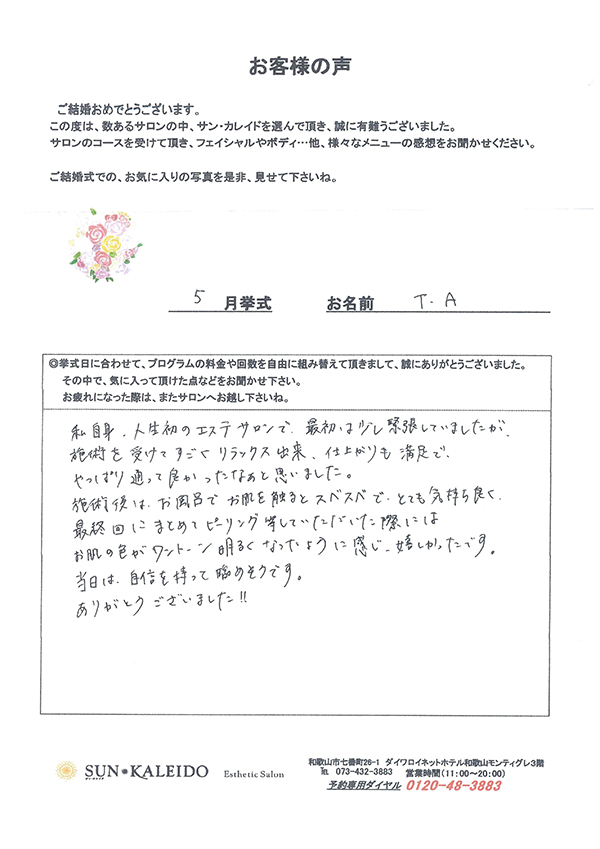 お客様の声
ご結婚おめでとうございます。
この度は、数あるサロンの中、サン・カレイドを選んで頂き、誠に有難うございました。
サロンのコースを受けて頂き、フェイシャルやボディ…他、様々なメニューの感想をお聞かせください。
ご結婚式での、お気に入りの写真を是非、見せて下さいね。
5 月挙式 お名前 T.A
◎挙式日に合わせて、プログラムの料金や回数を自由に組み替えて頂きまして、誠にありがとうございました。
その中で、気に入って頂けた点などをお聞かせ下さい。
お疲れになった際は、またサロンへお越し下さいね。
私自身、人生初のエステサロンで、最初は少し緊張していましたが、
施術を受けてすごくリラックス出来、仕上がりも満足で、
やっぱり通って良かったなぁと思いました。
施術後は、お風呂でお肌を触るとスベスベで、とても気持ち良く、
最終回にまとめてピーリング等していただいた際には
お肌の色がワントーン明るくなったように感じ、嬉しかったです。
当日は、自信を持って臨めそうです。
ありがとうございました!!
SUN・KALEIDO Esthetic Salon
サンカレイド
和歌山市七番町26-1 ダイワロイネットホテル和歌山モンティグレ3階
℡ 073-432-3883 営業時間(11:00~20:00)
予約専用ダイヤル 0120-48-3883